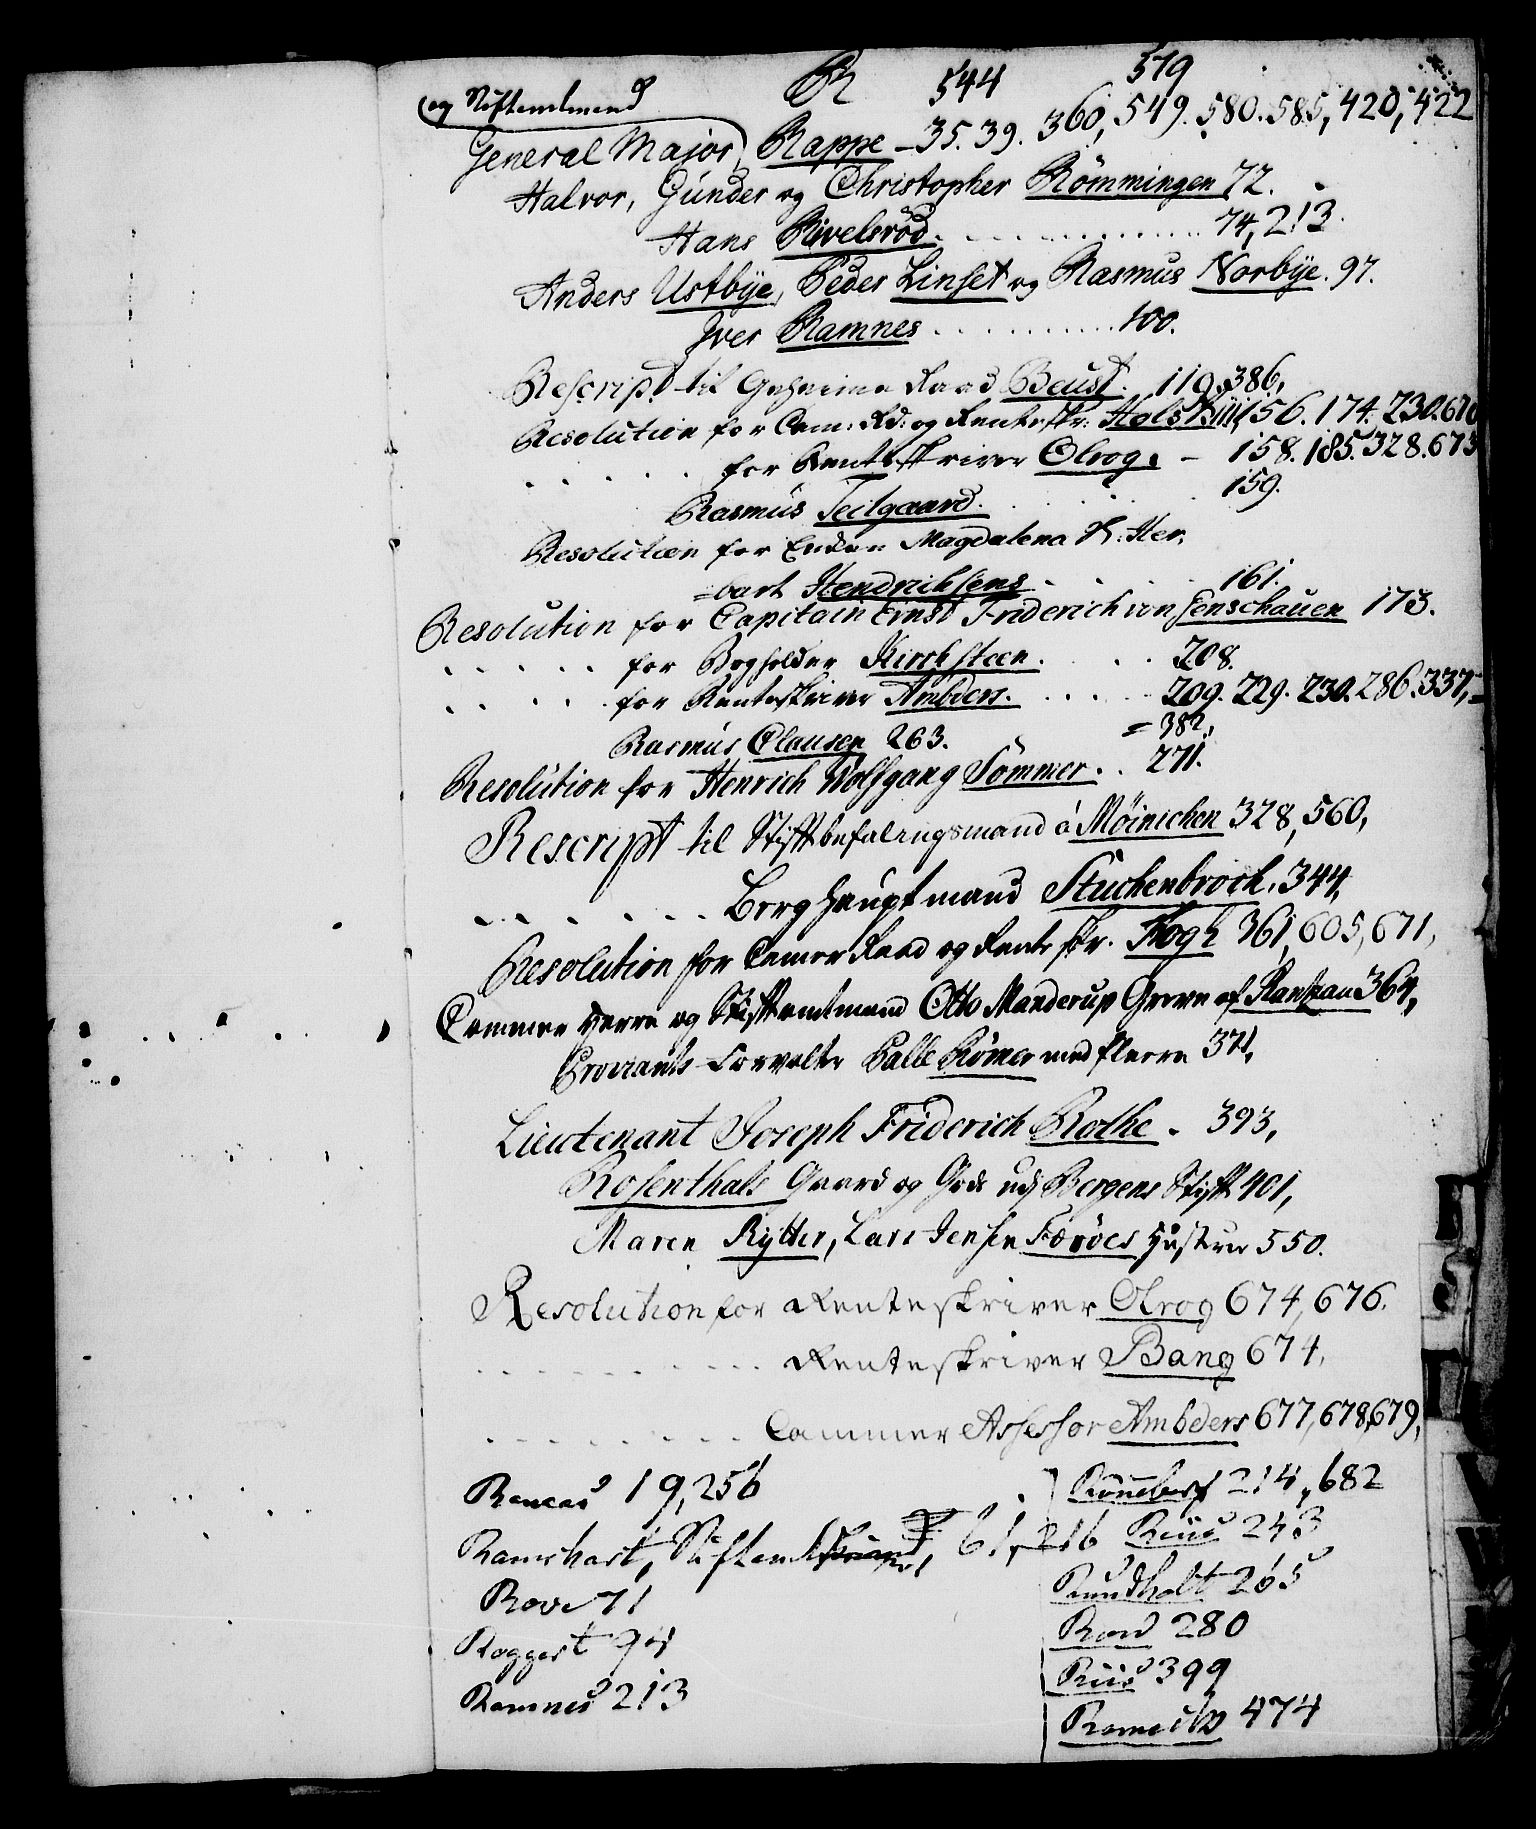 R 544 579
og Stiftamtmand
General Major Rappe - 35. 39. 360, 549. 580. 585, 420, 422
Halvor, Gunder og Christopher Römmingen 72.
Hans Rivelsröd. 74, 213.
Anders Ustbÿe, Peder Linset og Rasmus Norbÿe. 97.
Iver Ramnes 100.
Rescript til Geheime Raad Beust. 119, 386,
Resolution for Cam: Rd: og Renteskr: 156. 174. 230. 670
for Renteskriver Olrog. - 158. 185. 328. 673
Rasmus Teilgaard. 159.
Resolution for Enken Magdalena S: Her,
=bart Hendrichsens 161.
Resolution for Capitain Ernst Friderich von Jenschauen 173.
for Bogholder Kirchsteen. 208.
for Renteskriver Ambders. 209. 229. 230. 286. 337, =
= 382,
Rasmus Clausen 263.
Resolution for Henrich Wolfgang Sommer. 271.
Rescript til Stiftbefalingsmand á Möinichen 328, 560,
Berghauptmand Stuckenbrock, 344,
Resolution for Camer Raad og Rente skr. Fogh 361, 605, 671,
Cammer Herre og Stiftamtmand Otto Manderup Greve af Rantzau 364,
Proviants Forvalter Palle Römer med flerre 371,
Lieutenant Joseph Friderich Rothe. 393,
Rosenthals Gaard og Gods udj Bergens Stift 401,
Maren Rytter, Lars Jensen Færöes Hustrue 550.
Resolution for Renteskriver Olrog 674, 676.
Renteskriver Bang 674,
Cammer Assessor Ambders 677, 678, 679,
Rancau 19, 256
Ramshart, Stiftamt 61, 216
Rove 71
Roggert 94
Ramnes 213
214, 682
Riis 243
Rundholt 265
Rord 280
Riis 399
474